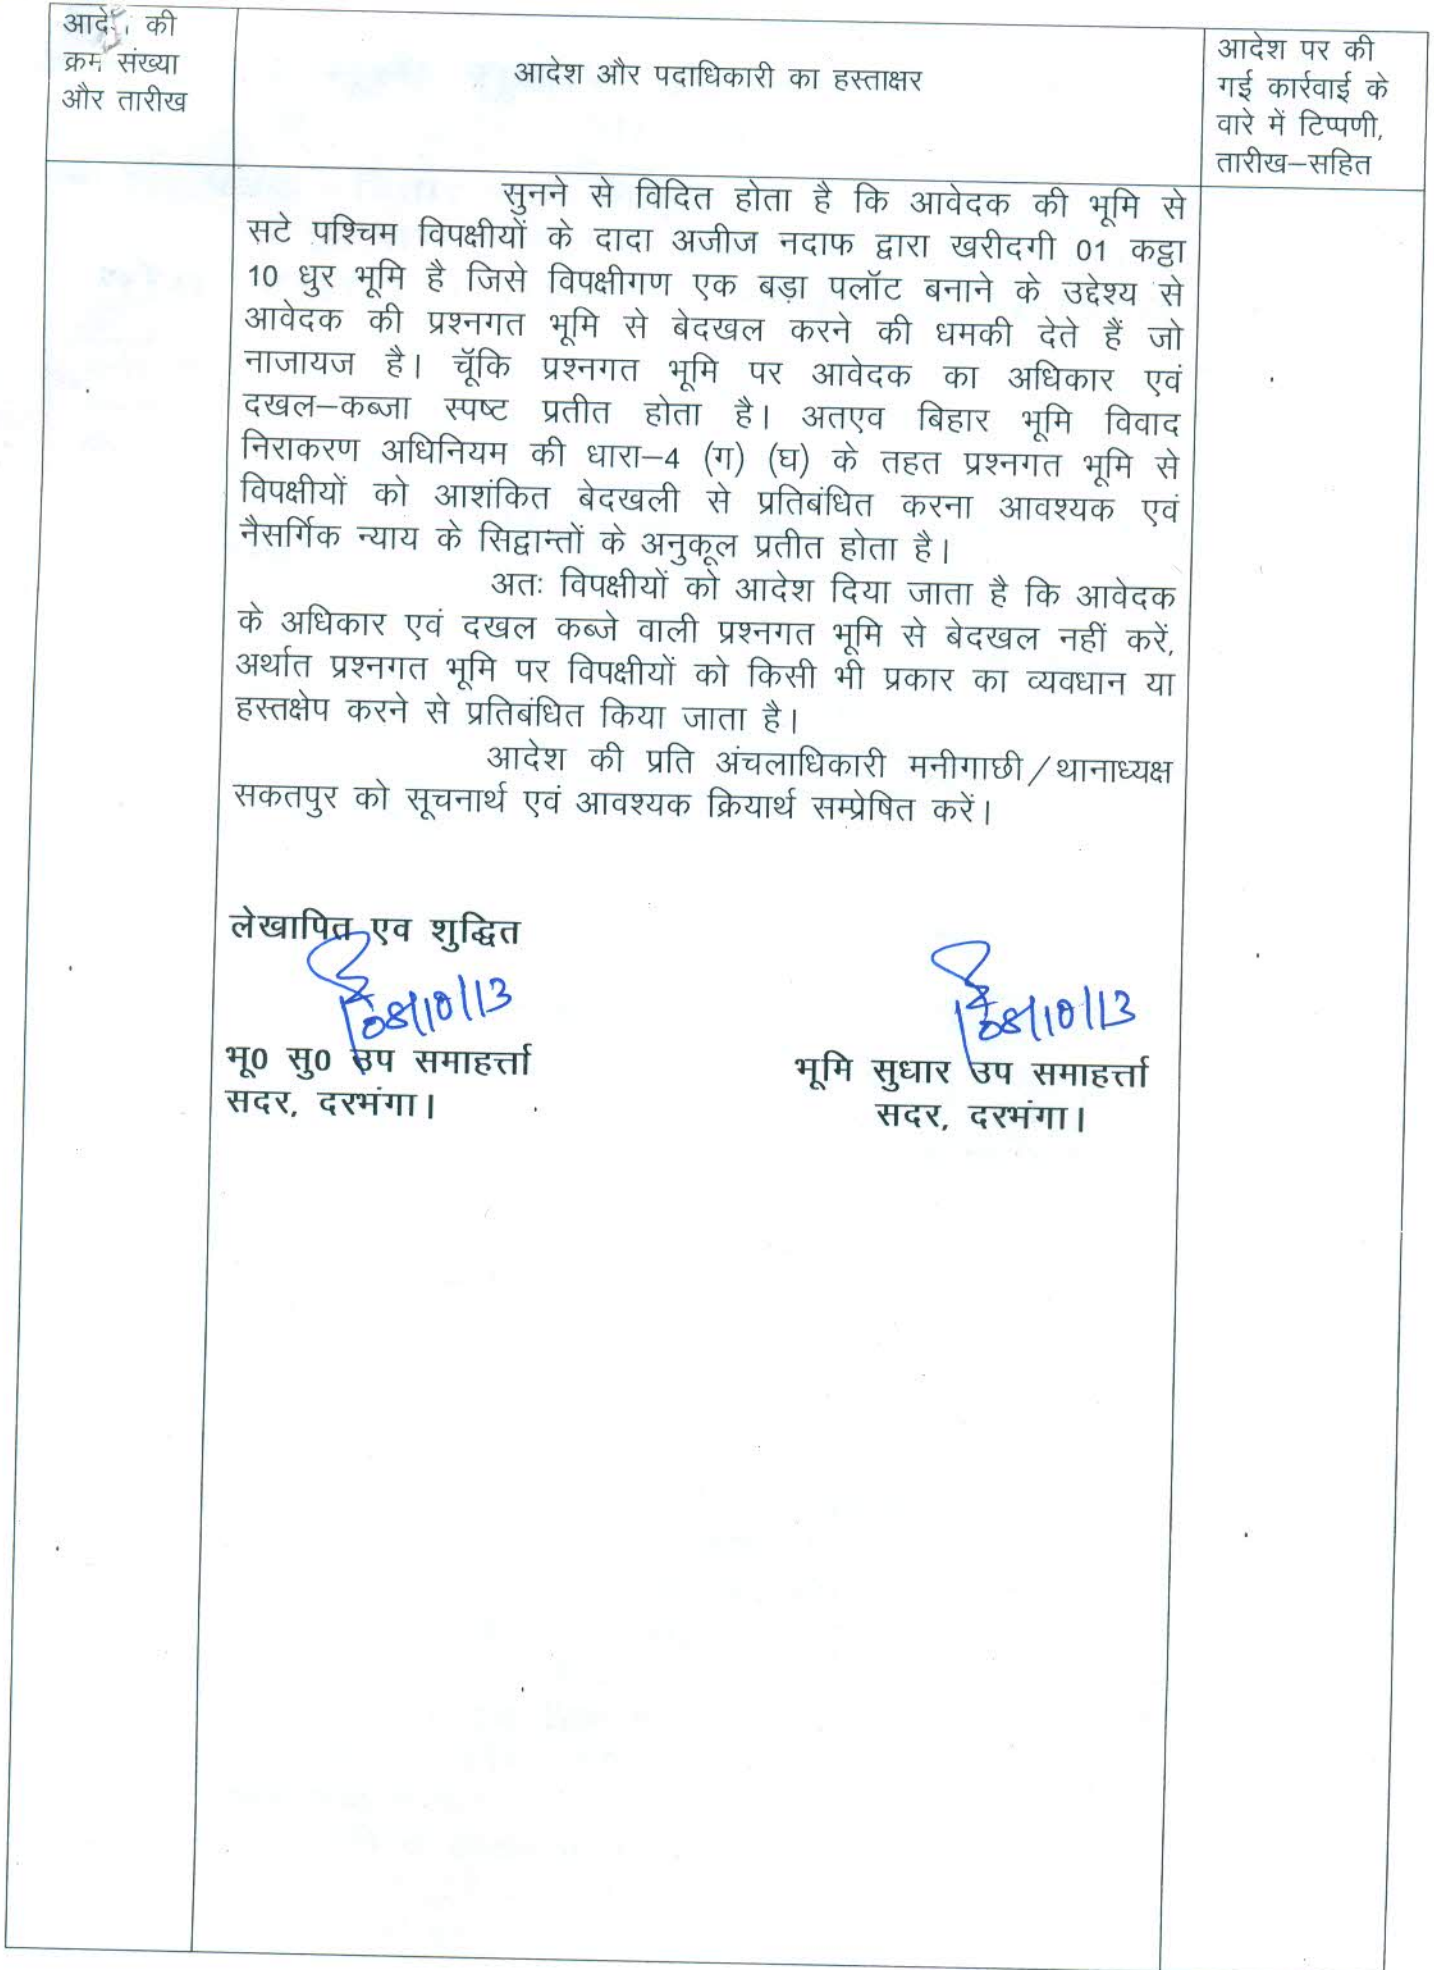 आदेश की
क्रम संख्या
और तारीख
आदेश और पदाधिकारी का हस्ताक्षर
आदेश पर की
गई कार्रवाई के
वारे में टिप्पणी,
तारीख–सहित
सुनने से विदित होता है कि आवेदक की भूमि से
सटे पश्चिम विपक्षीयों के दादा अजीज नदाफ द्वारा खरीदगी 01 कट्ठा
10 धुर भूमि है जिसे विपक्षीगण एक बड़ा पलॉट बनाने के उद्देश्य से
आवेदक की प्रश्नगत भूमि से बेदखल करने की धमकी देते हैं जो
नाजायज है। चूॅकि प्रश्नगत भूमि पर आवेदक का अधिकार एवं
दखल–कब्जा स्पष्ट प्रतीत होता है। अतएव बिहार भूमि विवाद
निराकरण अधिनियम की धारा–4 (ग) (घ) के तहत प्रश्नगत भूमि से
विपक्षीयों को आशंकित बेदखली से प्रतिबंधित करना आवश्यक एवं
नैसर्गिक न्याय के सिद्वान्तों के अनुकूल प्रतीत होता है।
अतः विपक्षीयों को आदेश दिया जाता है कि आवेदक
के अधिकार एवं दखल कब्जे वाली प्रश्नगत भूमि से बेदखल नहीं करें,
अर्थात प्रश्नगत भूमि पर विपक्षीयों को किसी भी प्रकार का व्यवधान या
हस्तक्षेप करने से प्रतिबंधित किया जाता है।
आदेश की प्रति अंचलाधिकारी मनीगाछी/थानाध्यक्ष
सकतपुर को सूचनार्थ एवं आवश्यक क्रियार्थ सम्प्रेषित करें।
लेखापित एव शुद्धित
08/10/13
08/10/13
भू0 सु0 उप समाहर्त्ता
भूमि सुधार उप समाहर्त्ता
सदर, दरभंगा।
सदर, दरभंगा।